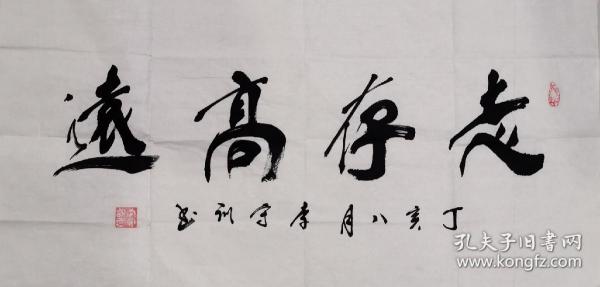 志存高遠
丁亥八月李守訓书
孔夫子旧书网
www.kongfz.com